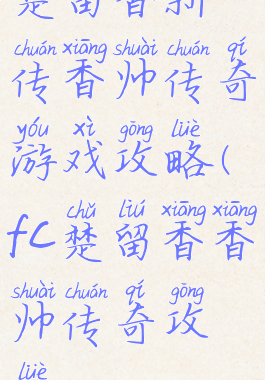 楚留香新
chuán xiāng shuài chuán qí
传香帅传奇
yóu xì gōng lüè
游戏攻略(
chǔ liú xiāng xiāng
fc楚留香香
shuài chuán qí gōng
帅传奇攻
lüè